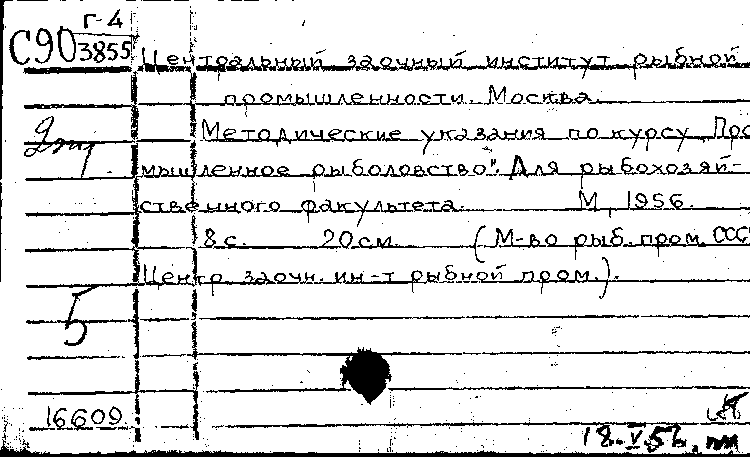 Г-4
С90 3855 Центральный заочный институт рыбной
промышленности. Москва.
Методические указания по курсу „Про
мышленное рыболовство". Для рыбохозяй-
ственного факультета. М, 1956.
8 с. 20 см. (М-во рыб. пром. СССР
Центр заочн. ин-т рыбной пром.).
5
16609